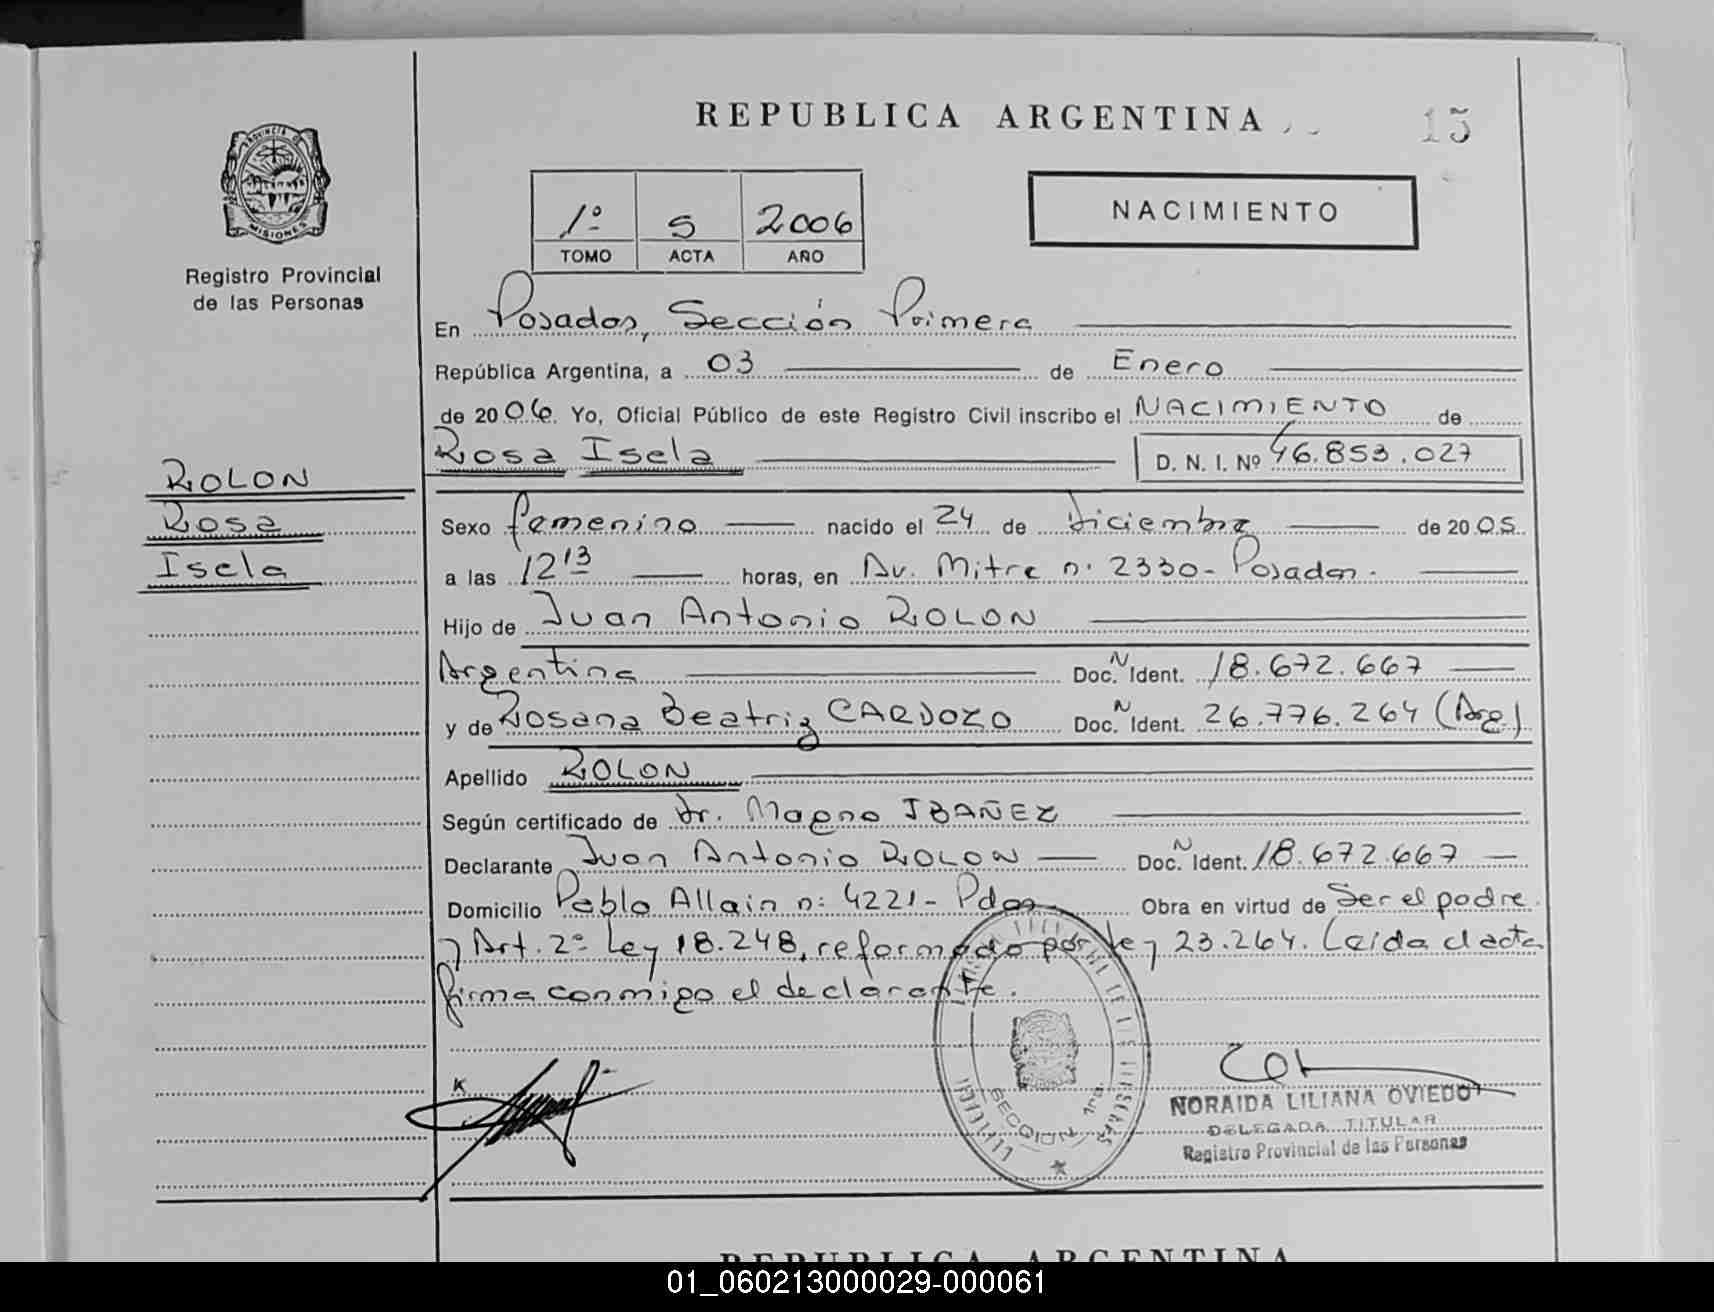 REPUBLICA ARGENTINA
15
PROVINCIA DE
MISIONES
Registro Provincial
de las Personas
1º 5 2006
TOMO ACTA AÑO
NACIMIENTO
En Posadas, Sección Primera
República Argentina, a 03 de Enero
de 2006. Yo, Oficial Público de este Registro Civil inscribo el NACIMIENTO de
Rosa Isela D. N. I. Nº 46.853.027
ROLON
Rosa
Isela
Sexo femenino nacido el 24 de Diciembre de 2005
a las 12 13 horas, en Av. Mitre n: 2330- Posadas.
Hijo de Juan Antonio ROLON
Argentina Doc. N Ident. 18.672.667
y de Rosana Beatriz CARDOZO Doc. N Ident. 26.776.264 (Arg)
Apellido ROLON
Según certificado de Dr. Magno IBAÑEZ
Declarante Juan Antonio ROLON Doc. N Ident. 18.672.667
Domicilio Pablo Allain n: 4221- Pdas. Obra en virtud de Ser el padre
y Art. 2º Ley 18.248, reformado por ley 23.264. Leída el acta
firma conmigo el declarante.
SECCION 1ra.
NORAIDA LILIANA OVIEDO
DELEGADA TITULAR
Registro Provincial de las Personas
REPUBLICA ARGENTINA
01_060213000029-000061